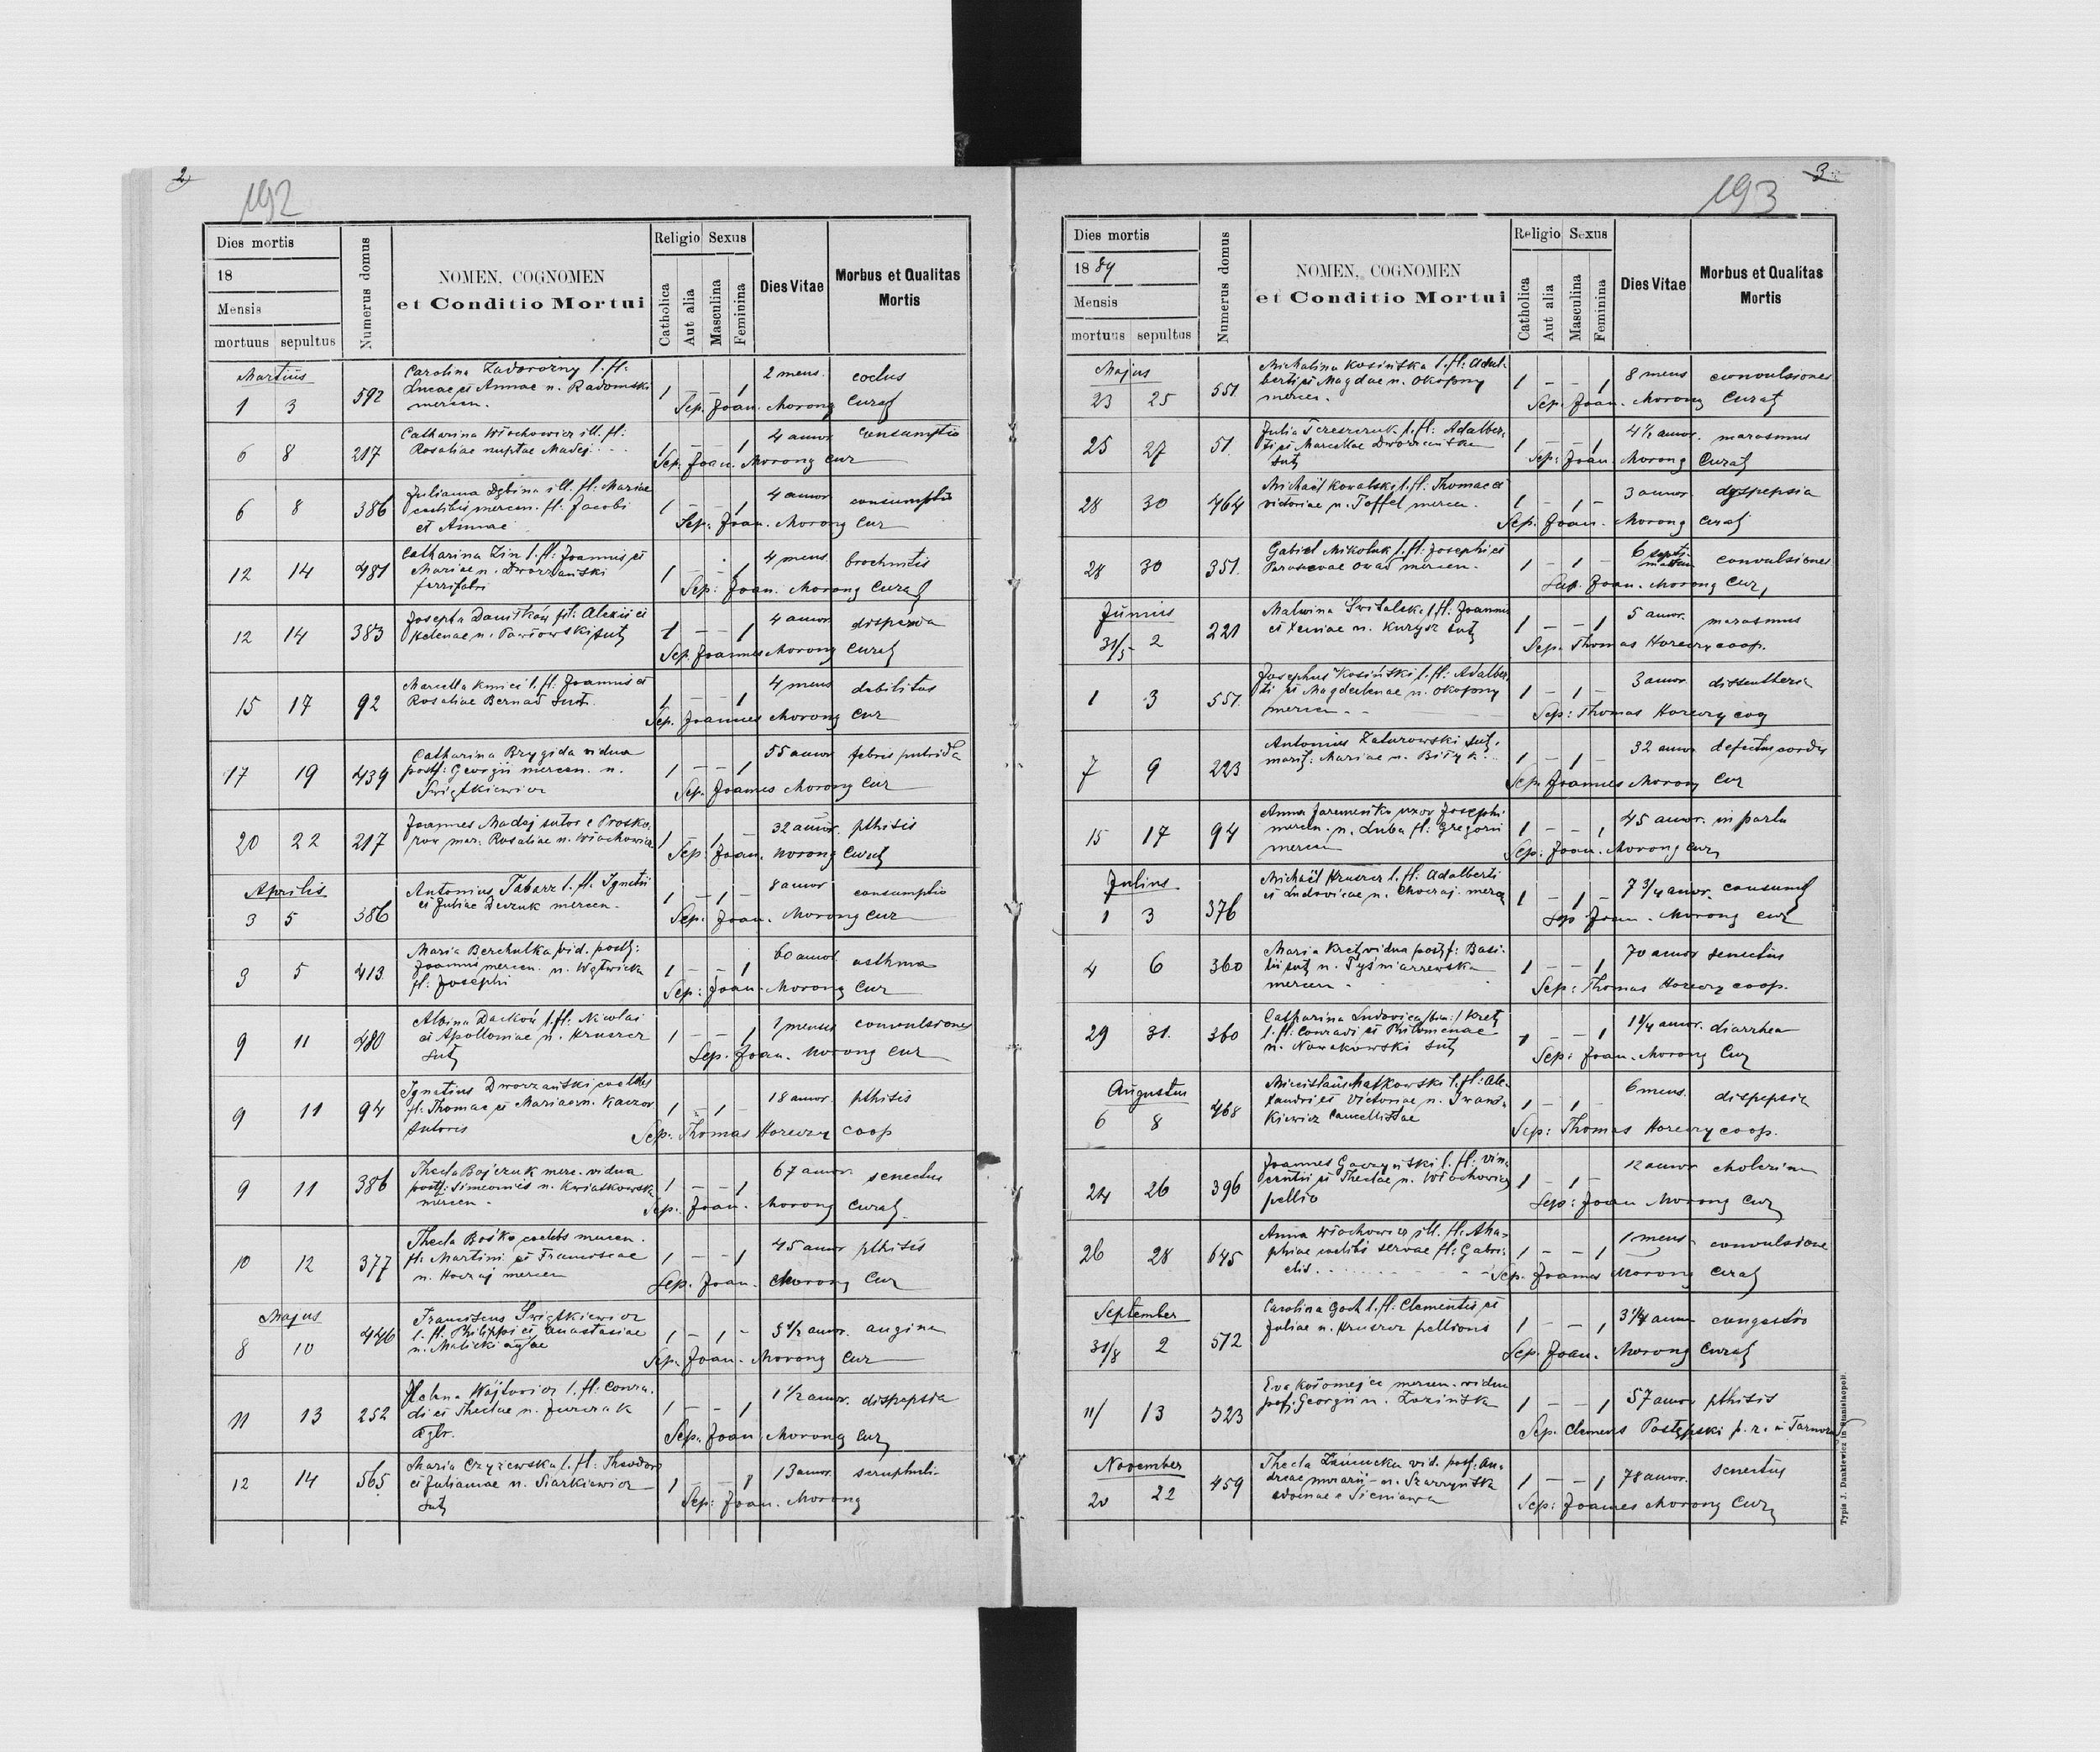 2
192
Dies mortis
18
Mensis
mortuus sepultus
Numerus domus
NOMEN, COGNOMEN
et Conditio Mortui
Religio Sexus
Catholica
Aut alia
Masculina
Feminina
Dies Vitae
Morbus et Qualitas
Mortis
Martius
1 3 592 Carolina Zadorożny l. fl:
Lucae et Annae n. Radomski
mercen.
1 – – 1 2 mens.
Sep. Joan. Morong Curat
6 8 217 Catharina Włochowicz ill. fl:
Rosaliae nuptae Madej
1 – – 1 4 annor consumptio
Sep. Joan. Morong Cur
6 8 386 Juliana ill. fl: Mariae
caelibis mercen. fl. Jacobi
et Annae
1 – – 1 4 annor consumptio
Sep: Joan. Morong Cur
12 14 481 Catharina Zin l. fl: Joannis et
Mariae n. Dworzański
1 – 1 4 mens. brochnitis
Sep: Joan. Morong Curat
12 14 383 Josepha fil: Alexii et
Helenae n. Pawłowski sut
1 – – 1 4 annor
Sep. Joannes Morong Curat
15 17 92 Marcella Kmieć l. fl: Joannis et
Rosaliae Bernad sut.
1 – – 1 4 mens debilitas
Sep. Joannes Morong Cur
17 19 439 Catharina Brygida vidua
post: Georgii mercen. n.
Swiątkiewicz
1 – – 1 55 annor febris putrida
Sep. Joannes Morong Cur
20 22 217 Joannes Madej sutor e
mar: Rosaliae n. Włochowicz
1 – 1 – 32 annor. pthisis
Sep: Joan. Morong Curat
Aprilis
3 5 386 Antonius Tabarz l. fl. Ignatii
et Juliae mercen.
1 – 1 – 8 annor consumptio
Sep: Joan. Morong Cur
3 5 413 Maria Berehulka vid. post:
Joannis mercen. n.
fl. Josephi
1 – – 1 60 annor asthma
Sep: Joan. Morong Cur
9 11 480 Albina l. fl: Nicolai
et Apolloniae n. Kruszer
sut
1 – – 1 1 mensis convulsiones
Sep. Joan. Morong Cur
9 11 94 Ignatius Dworzański caelebs
fl: Thomae et Mariae n. Kaczor
sutoris
1 – 1 – 18 annor pthisis
Sep: Thomas Horeczy coop
9 11 386 Thecla Bojczuk merc. vidua
post: Simeonis n. Kwiatkowska
mercen.
1 – – 1 67 annor senectus
Sep. Joan. Morong Curat
10 12 377 Thecla Bośko caelebs mercen.
fl: Martini et Franciscae
n. mercen
1 – – 1 45 annor pthisis
Sep. Joan. Morong Cur
Majus
8 10 446 Franciscus Swiątkiewicz
l. fl. Philippi et Anastasiae
n. Malicki
1 – 1 – 3 1/2 annor. angina
Sep. Joan. Morong Cur
11 13 252 Helena Wójtowicz l. fl: Conra-
di et Theclae n. Jurczak
1 – – 1 1 1/2 annor. dispepsia
Sep. Joan. Morong Cur
12 14 565 Maria Czyżewska l. fl: Theodori
et Julianae n. Siarkiewicz
sut
1 – – 1 13 annor.
Sep: Joan. Morong
3
193
Dies mortis
18 84
Mensis
mortuus sepultus
Numerus domus
NOMEN, COGNOMEN
et Conditio Mortui
Religio Sexus
Catholica
Aut alia
Masculina
Feminina
Dies Vitae
Morbus et Qualitas
Mortis
Majus
23 25 551 Michalina Kosińska l. fl: Adal-
berti et Magdae n. Okopny
mercen.
1 – – 1 8 mens convulsiones
Sep. Joan. Morong Curat
25 27 51. Julia l. fl: Adalber-
ti et Marcellae Dworzańska
sut
1 – – 1 4 1/2 annor. marasmus
Sep: Joan Morong Curat
28 30 464 Michaël Kowalski l. fl. Thomae et
Victoriae n. Toffel mercen.
1 – 1 – 3 annor. dyspepsia
Sep. Joan. Morong Curat
28 30 351. Gabiel Mikoluk l. fl: Josephi et
Parascevae mercen.
1 – 1 – 6 convulsiones
Sep. Joan. Morong Cur
Junius
31/5 2 221 Malwina Świtalska l. fl: Joannis
et Xeniae n. Kurysz sut
1 – – 1 5 annor. marasmus
Sep. Thomas Horeczy coop.
1 3 551. Josephus Kosiński l. fl: Adalber-
ti et Magdalenae n. Okopny
mercen
1 – 1 – 3 annor
Sep: Thomas Horeczy coop
7 9 223 Antonius Zaturowski sut.
marit: Mariae n. Biłyk
1 – 1 – 32 annor defectus cordis
Sep. Joannes Morong Cur
15 17 94 Anna uxor Josephi
mercen. n. Luba fl: Gregorii
mercen
1 – – 1 45 annor. in partu
Sep: Joan. Morong Cur
Julius
1 3 376 Michaël Kruszer l. fl: Adalberti
et Ludovicae n. merc
1 – 1 – 7 3/4 annor. consumpt
Sep Joan. Morong Cur
4 6 360 Maria Kret vidua post f: Basi-
lii sut n. Tyśmiarzewska
mercen
1 – – 1 70 annor senectus
Sep: Thomas Horeczy coop.
29 31. 360 Catharina Ludovica /bin:/ Kret
l. fl: Conradi et Philomenae
n. Nowakowski sut
1 – – 1 1 1/4 annor. diarrhea
Sep: Joan. Morong Cur
Augustus
6 8 468 Matkowski l. fl: Ale-
xandri et Victoriae n. Iwasz-
kiewicz cancellistae
1 – 1 – 6 mens. dispepsia
Sep: Thomas Horeczy coop.
24 26 396 Joannes l. fl: Vin-
centii et Theclae n. Włochowicz
pellio
1 – 1 – 12 annor cholerina
Sep: Joan Morong Cur
26 28 645 Anna Włochowicz ill. fl: Aha-
phiae caelibis servae fl: Gabri-
elis
1 – – 1 1 mens convulsione
Sep. Joannes Morong Curat
September
31/8 2 572 Carolina Goch l. fl: Clementis et
Juliae n. Kruszer pellionis
1 – – 1 3 1/4 annor congestio
Sep. Joan. Morong Curat
11/ 13 323 Eva Kołomejca mercen. vidua
post: Georgii n.
1 – – 1 57 annor pthisis
Sep. Clemens Postępski p. r.
November
20 22 459 Thecla vid. post: An-
dreae n.
e Sieniawa
1 – – 1 78 annor. senectus
Sep: Joannes Morong Cur
Typis J. Dankiewicz in Stanislaopoli.